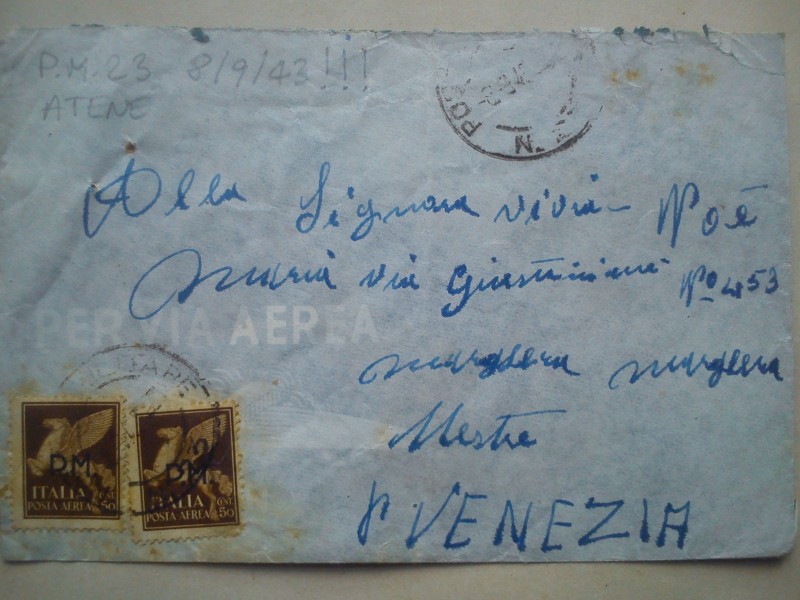 P.M. 23 8/9/43!!!
ATENE
Alla Signora Vivia-Noè
Maria via Giustiniani Nº 453
PER VIA AEREA
Marghera Marghera
Mestre
VENEZIA
P.M.
ITALIA
POSTA AEREA CENT. 50
P.M.
ITALIA
POSTA AEREA CENT. 50